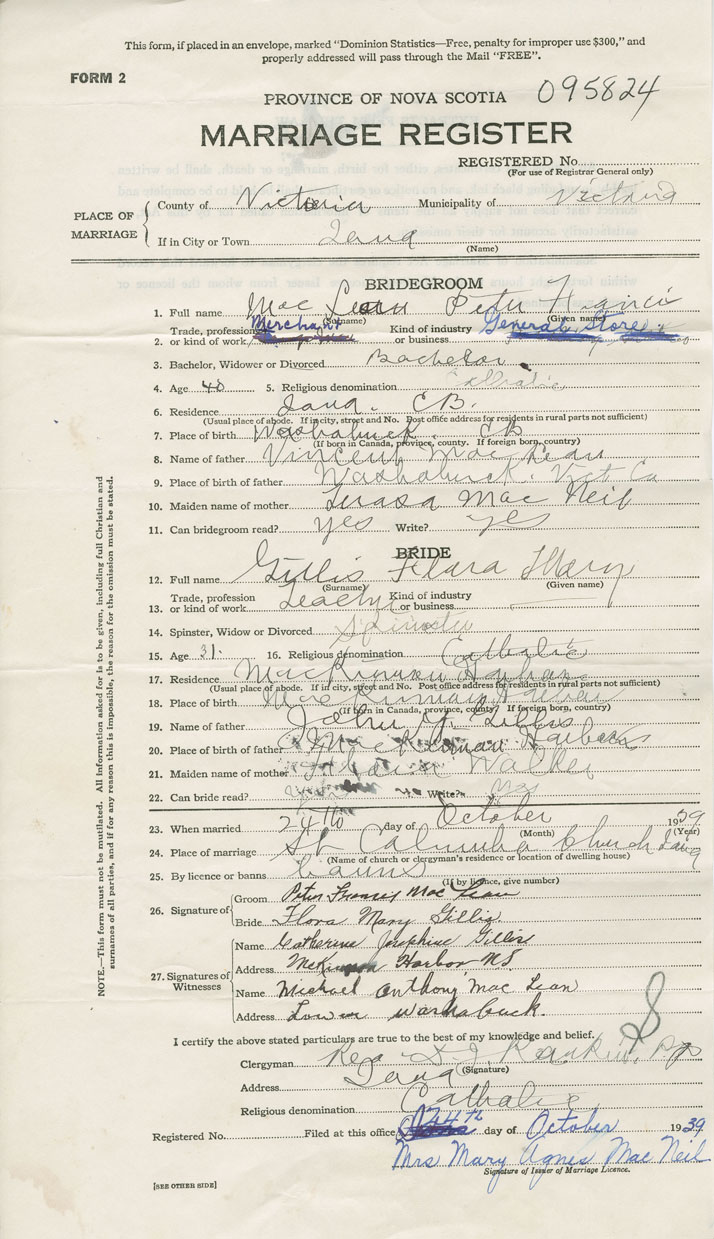 This form, if placed in an envelope, marked "Dominion Statistics—Free, penalty for improper use $300," and
properly addressed will pass through the Mail "FREE".
FORM 2
PROVINCE OF NOVA SCOTIA 095824
MARRIAGE REGISTER
REGISTERED No.
(For use of Registrar General only)
PLACE OF MARRIAGE
County of Victoria Municipality of Victoria
If in City or Town Iona
(Name)
BRIDEGROOM
1. Full name Mac Lean Peter Francis
(Surname) (Given name)
Trade, profession Merchant Kind of industry General Store
2. or kind of work or business
3. Bachelor, Widower or Divorced Bachelor
4. Age 40 5. Religious denomination Catholic
6. Residence Iona. CB.
(Usual place of abode. If in city, street and No. Post office address for residents in rural parts not sufficient)
7. Place of birth Washabuck. CB
(If born in Canada, province, county. If foreign born, country)
8. Name of father Vincent Mac Lean
9. Place of birth of father Washabuck. Vict Co
10. Maiden name of mother Mac Neil
11. Can bridegroom read? yes Write? yes
BRIDE
12. Full name Gillis Flora Mary
(Surname) (Given name)
Trade, profession Kind of industry
13. or kind of work or business
14. Spinster, Widow or Divorced Spinster
15. Age 31. 16. Religious denomination Catholic
17. Residence MacKinnon Harbor
(Usual place of abode. If in city, street and No. Post office address for residents in rural parts not sufficient)
18. Place of birth MacKinnon Harbor
(If born in Canada, province, county? If foreign born, country)
19. Name of father John Gillis
20. Place of birth of father MacKinnon Harbor
21. Maiden name of mother Walker
22. Can bride read? Write? yes
23. When married 24th day of October 1939
(Month) (Year)
24. Place of marriage St Columba Church Iona
(Name of church or clergyman's residence or location of dwelling house)
25. By licence or banns banns
(If by licence, give number)
26. Signature of
Groom Peter Francis Mac Lean
Bride Flora Mary Gillis
27. Signatures of Witnesses
Name Catherine Josephine Gillis
Address McKinnon Harbor NS
Name Michael Anthony Mac Lean
Address Lower Washabuck.
I certify the above stated particulars are true to the best of my knowledge and belief.
Clergyman Rev Rankin, PP
(Signature)
Address Iona
Religious denomination Catholic
Registered No. Filed at this office 24th day of October 1939
Mrs Mary Agnes Mac Neil
Signature of Issuer of Marriage Licence.
[SEE OTHER SIDE]
NOTE.—This form must not be mutilated. All information asked for is to be given, including full Christian and
surnames of all parties, and if for any reason this is impossible, the reason for the omission must be stated.